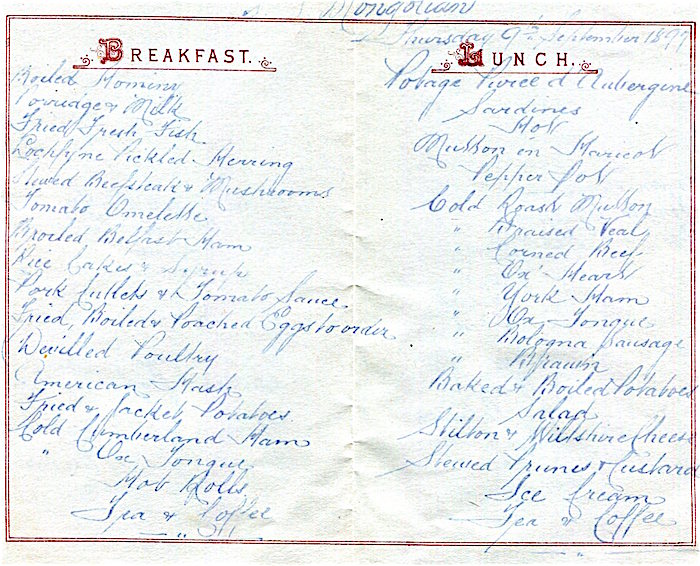 Mongolian
Thursday 9th September 1897
BREAKFAST.
Boiled Hominy
Porridge & Milk
Fried Fresh Fish
Lochfyne Pickled Herring
Stewed Beefsteak & Mushrooms
Tomato Omelette
Broiled Belfast Ham
Rice Cakes & Syrup
Pork Cutlets & Tomato Sauce
Fried, Boiled & Poached Eggs to order
Devilled Poultry
American Hash
Fried & Jacket Potatoes
Cold Cumberland Ham
" Ox Tongue
Hot Rolls
Tea & Coffee
LUNCH.
Potage Puree d'Aubergine
Sardines
Hot
Mutton en Haricot
Pepper Pot
Cold Roast Mutton
" Braised Veal
" Corned Beef
" Ox Heart
" York Ham
" Ox Tongue
" Bologna Sausage
" Brawn
Baked & Boiled Potatoes
Salad
Stilton & Wiltshire Cheese
Stewed Prunes & Custard
Ice Cream
Tea & Coffee